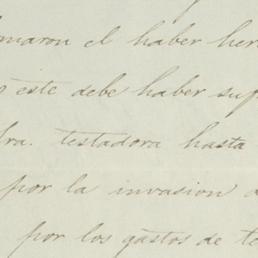 maron el haber her
este debe haber sup
ra. testadora hasta
por la invasion
por los gastos de te